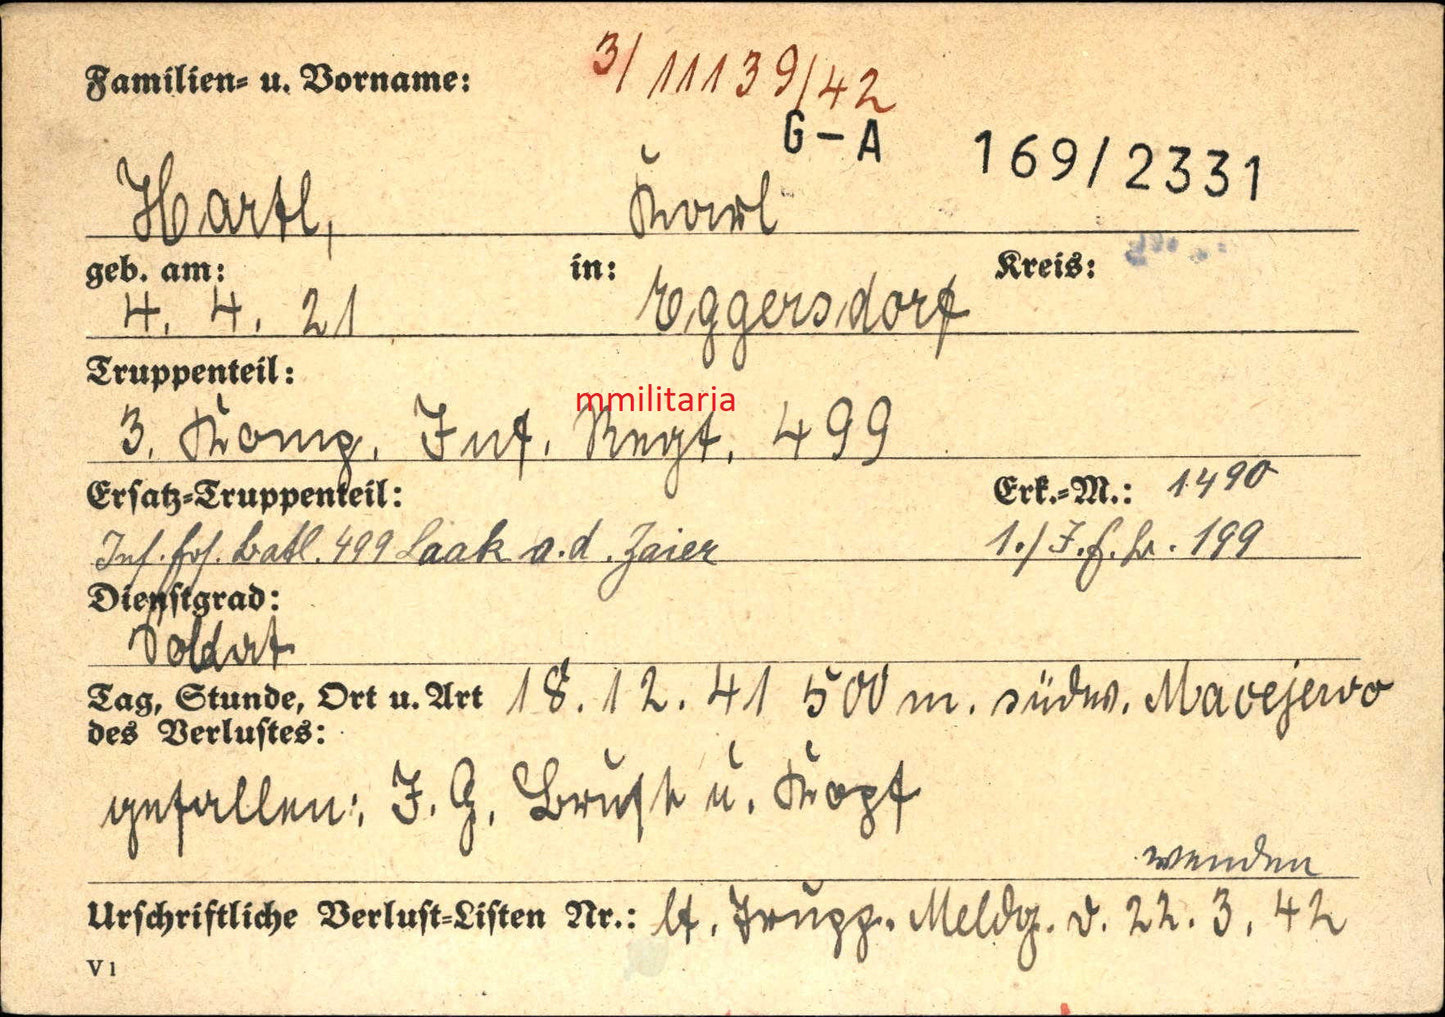 3/ 11139/42
Familien- u. Vorname:
G-A 169/2331
Hartl, Karl
geb. am: in: Kreis:
4. 4. 21 Eggersdorf
Truppenteil:
mmilitaria
3. Komp. Inf. Regt. 499
Ersatz-Truppenteil: Erk.-M.: 1490
Inf. Ers. Batl. 499 Laak a.d. Zaier 1./I.E.B. 199
Dienstgrad:
Soldat
Tag, Stunde, Ort u. Art 18. 12. 41 500 m. südw. Macejewo
des Verlustes:
gefallen: I. G. Brust u. Kopf
wenden
Urschriftliche Verlust-Listen Nr.: lt. Trupp. Meldg. v. 22. 3. 42
V 1